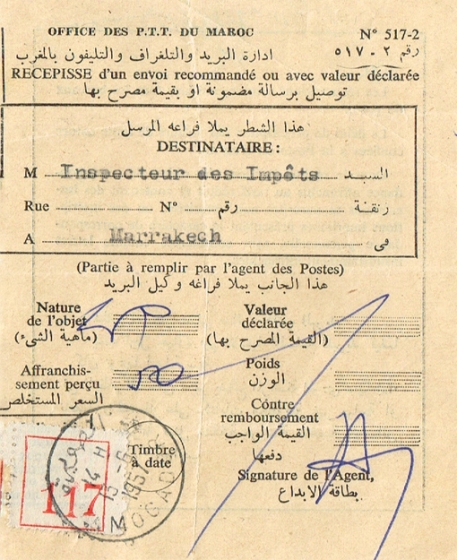 OFFICE DES P.T.T. DU MAROC N° 517-2
ادارة البريد والتلغراف والتليفون بالمغرب رقم ٢ - ٥١٧
RECEPISSE d'un envoi recommandé ou avec valeur déclarée
توصيل برسالة مضمونة او بقيمة مصرح بها
هذا الشطر يملا فراغه المرسل
DESTINATAIRE :
M Inspecteur des Impôts السيد
Rue N° رقم زنقة
A Marrakech في
(Partie à remplir par l'agent des Postes)
هذا الجانب يملا فراغه وكيل البريد
Nature de l'objet
(ماهية الشيء)
Valeur déclarée
(القيمة المصرح بها)
Affranchis-
sement perçu
السعر المستخلص
Poids
الوزن
Contre
remboursement
القيمة الواجب
دفعها
Timbre
à date
Signature de l'Agent,
بطاقة الابداع
117
MOGAD